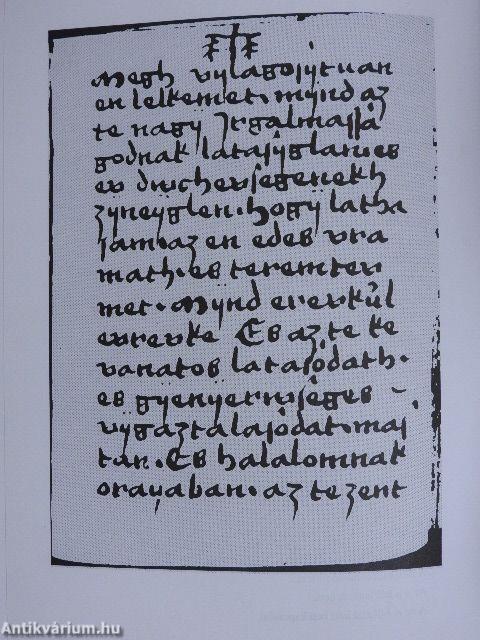 Megh vylagosytuan
en lelkemet. mynd az
te nagy Jrgalmassa
godnak latasyglan. es
ev dychevsegenekh
zyneyglen. hogy latha
sam. az en edes vra
math. es teremtev
met. Mynd erevkül
evrevke Es az te ke
vanatos latasodath.
es gyenyervseges
vygaztalasodat. mas
tan. Es halalomnak
orayaban. az te zent
Antikvárium.hu